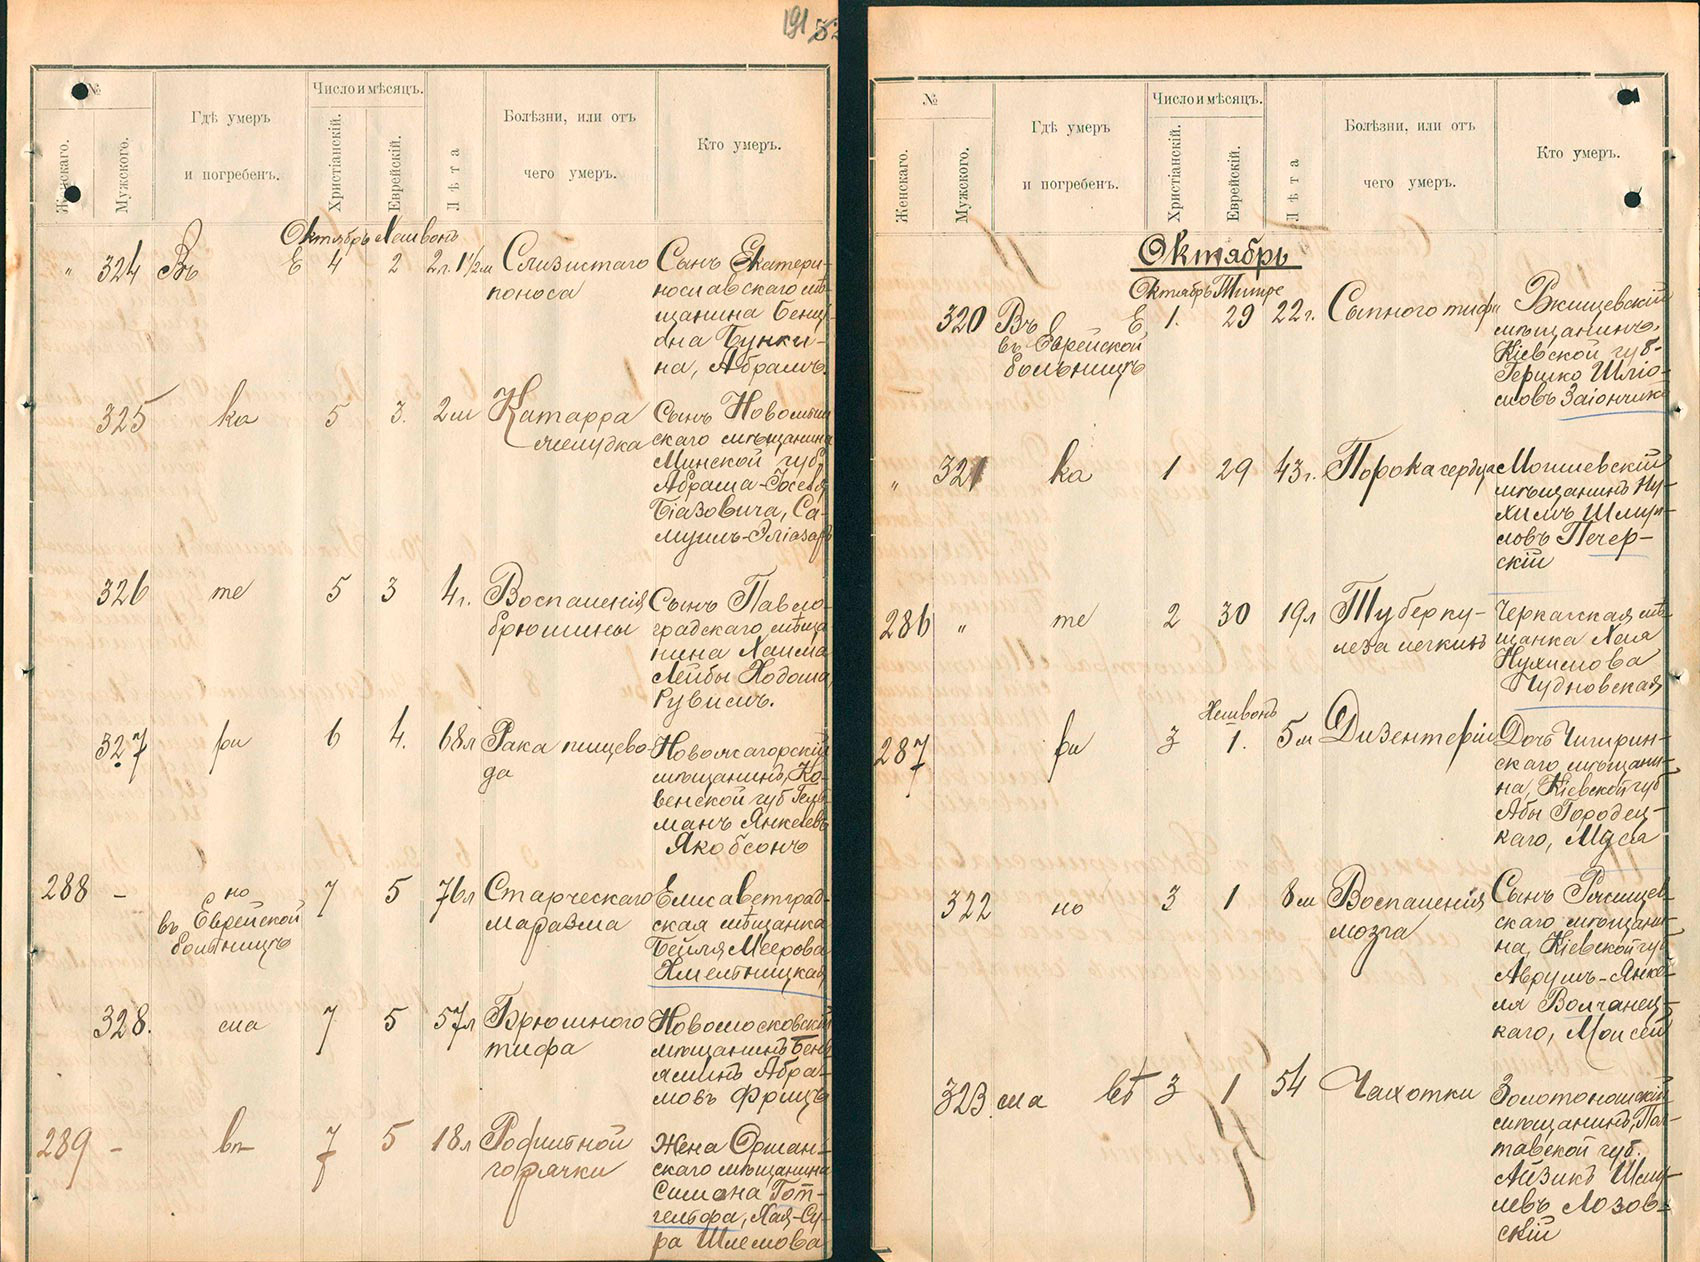 191
№
Женскаго.
Мужского.
Гдѣ умеръ
и погребенъ.
Число и мѣсяцъ.
Христіанскій.
Еврейскій.
Лѣта
Болѣзни, или отъ
чего умеръ.
Кто умеръ.
Октябрь Хешвонъ
" 324 Въ Е 4 2 2 л. 1 1/2 м Слизистаго
поноса
Сынъ Екатери-
нославскаго мѣ-
щанина Бенц
она Бунки-
на, Абрамъ.
325 ка 5 3. 2 м Катарра
желудка
Сынъ
скаго мѣщанина
Минской губ.
Абрама-Іоселя
Біазовича, Са-
муилъ-Эліазаръ
326 те 5 3 4 г. Воспаленія
брюшины
Сынъ Павло-
градскаго мѣща
нина Хаима
Лейбы Ходоша,
Рувимъ.
327 ри 6 4. 68 л Рака пищево-
да
Новожагорскій
мѣщанинъ, Ко-
венской губ
манъ Янкелевъ
Якобсонъ
288 - но
въ Еврейской
больницѣ
7 5 76 л Старческаго
маразма
Елисаветград-
ская мѣщанка
Бейля Меерова
Хмельницкая
328. сла 7 5 57 л Брюшного
тифа
Новомосковскій
мѣщанинъ Бень
яминъ Абра-
мовъ Фрицъ
289 - вѣ 7 5 18 л Родильной
горячки
Жена Оршан-
скаго мѣщанина
Симона Гот-
гельфа, Хая-Су-
ра Шлемова
№
Женскаго.
Мужского.
Гдѣ умеръ
и погребенъ.
Число и мѣсяцъ.
Христіанскій.
Еврейскій.
Лѣта
Болѣзни, или отъ
чего умеръ.
Кто умеръ.
Октябрь
Октябрь Тишре
320 Въ Е
въ Еврейской
больницѣ
1. 29 22 г. Сыпного тифа
Ржищевскій
мѣщанинъ,
Кіевской губ-
Гершко Шліо-
мовъ Заіончикъ
" 321 ка 1 29 43 г. Порока сердца
Могилевскій
мѣщанинъ Ну-
химъ Шмуй-
ловъ Печер-
скій
286 " те 2 30 19 л Туберку-
леза легкихъ
Черкасская мѣ-
щанка Хая
Нухимова
Чудновская
287 ри 3 Хешвонъ 1. 5 м Дизентеріи
Дочь Чигирин-
скаго мѣщани-
на, Кіевской губ
Абы Городец-
каго, Муся
322 но 3 1 8 м Воспаленія
мозга
Сынъ Ржищев-
скаго мѣщани-
на, Кіевской губ
Аврумъ-Янке-
ля Волчанец-
каго, Моисей
323 сла вѣ 3 1 54 Чахотки
Золотоношскій
мѣщанинъ, Пол-
тавской губ.
Айзикъ Шму-
левъ Лозов-
скій